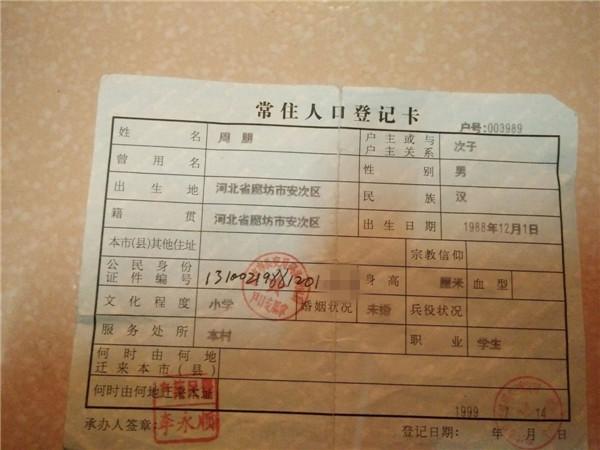 常住人口登记卡
户号:003989
姓名 周鹏 户主或与户主关系 次子
曾用名 性别 男
出生地 河北省廊坊市安次区 民族 汉
籍贯 河北省廊坊市安次区 出生日期 1988年12月1日
本市(县)其他住址 宗教信仰
公民身份证件编号 13100219881201 身高 厘米 血型
文化程度 小学 婚姻状况 未婚 兵役状况
服务处所 本村 职业 学生
何时由何地迁来本市(县)
何时由何地迁来本址
承办人签章: 李永顺 登记日期: 1999年7月14日